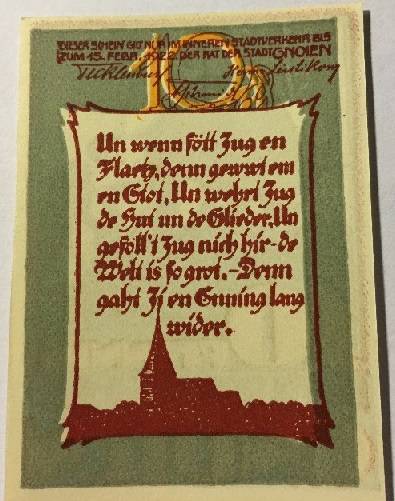 DIESER SCHEIN GILT NUR IM INNEREN STADTVERKEHR BIS
ZUM 15. FEBR. 1922. DER RAT DER STADT GNOIEN
10
Un wenn fött Jug en
Flaetz, denn gewwt em
en Stot, Un wehrt Jug
de Hut un de Glieder. Un
geföll't Jug nich hir - de
Welt is so grot. - Denn
gaht Ji en Enning lang
wider.